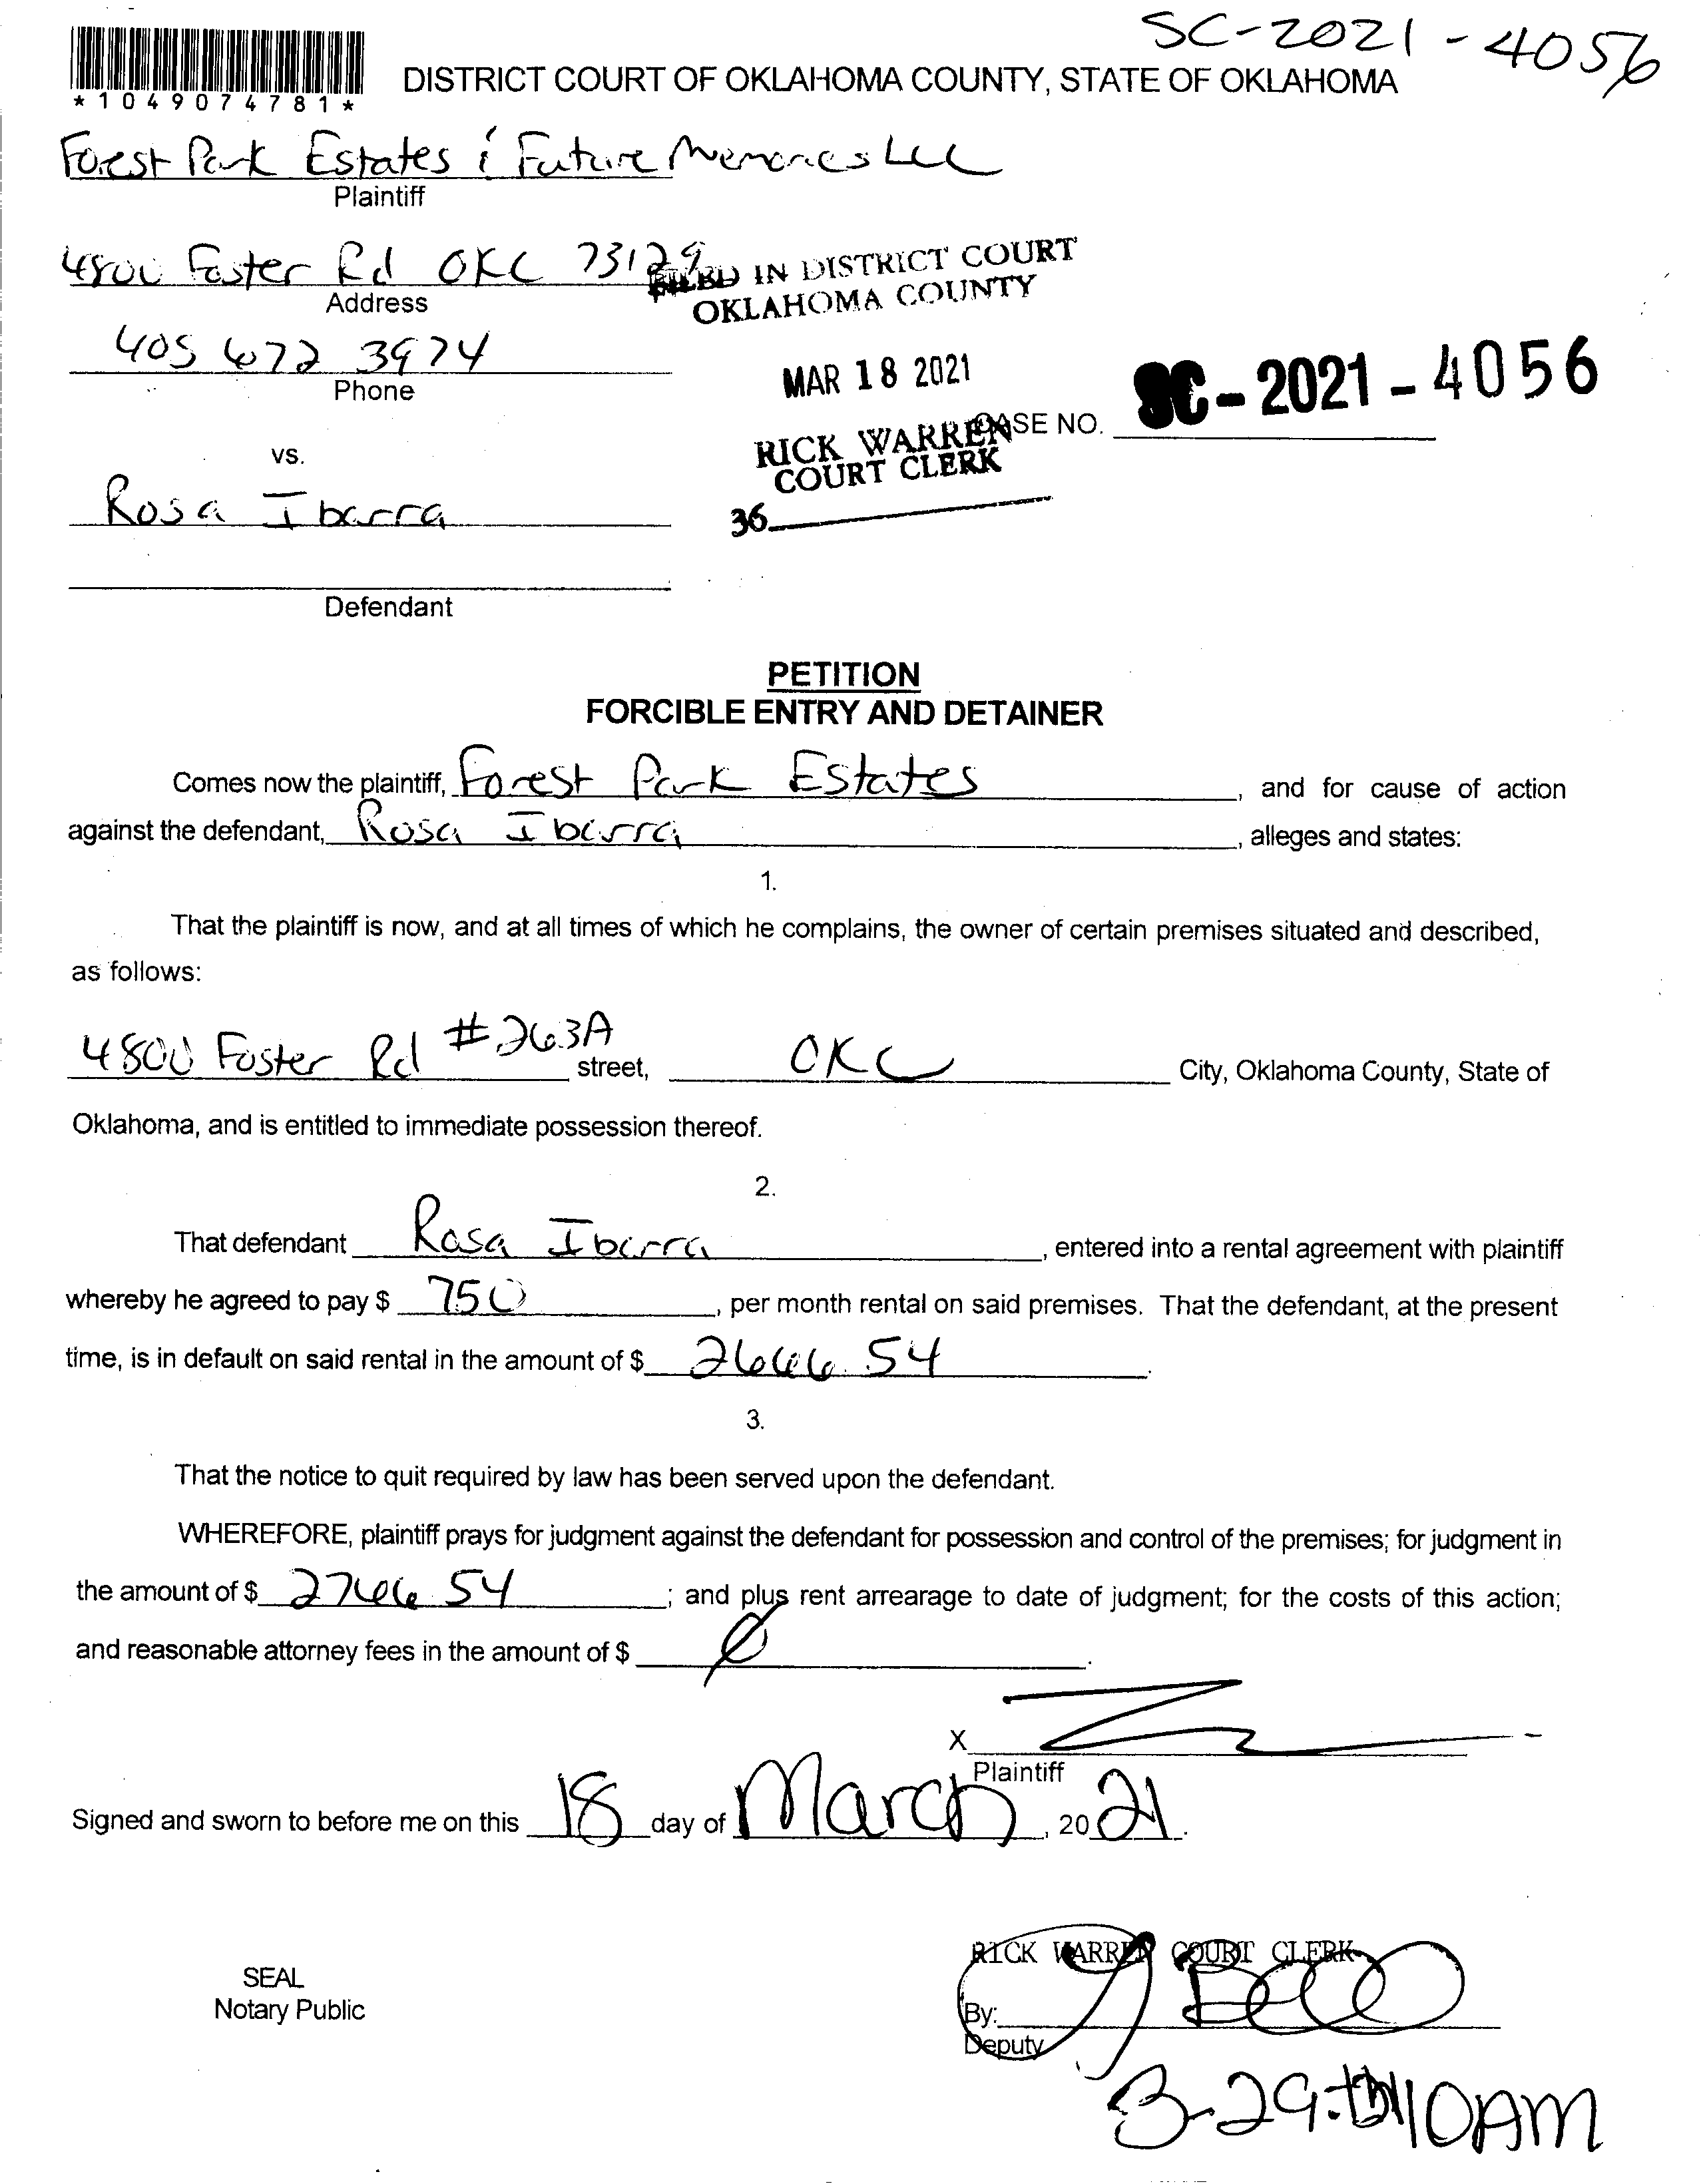 SC-2021-4056
*1049074781*
DISTRICT COURT OF OKLAHOMA COUNTY, STATE OF OKLAHOMA
Forest Park Estates & Future Memories LLC
Plaintiff
4800 Foster Rd OKC 73129
Address
FILED IN DISTRICT COURT
OKLAHOMA COUNTY
405 672 3974
Phone
MAR 18 2021
CASE NO. SC-2021-4056
RICK WARREN
COURT CLERK
36
vs.
Rosa Ibarra
Defendant
PETITION
FORCIBLE ENTRY AND DETAINER
Comes now the plaintiff, Forest Park Estates, and for cause of action
against the defendant, Rosa Ibarra, alleges and states:
1.
That the plaintiff is now, and at all times of which he complains, the owner of certain premises situated and described,
as follows:
4800 Foster Rd #263A street, OKC City, Oklahoma County, State of
Oklahoma, and is entitled to immediate possession thereof.
2.
That defendant Rosa Ibarra, entered into a rental agreement with plaintiff
whereby he agreed to pay $ 750, per month rental on said premises. That the defendant, at the present
time, is in default on said rental in the amount of $ 2666.54.
3.
That the notice to quit required by law has been served upon the defendant.
WHEREFORE, plaintiff prays for judgment against the defendant for possession and control of the premises; for judgment in
the amount of $ 2766.54; and plus rent arrearage to date of judgment; for the costs of this action;
and reasonable attorney fees in the amount of $ Ø.
X
Plaintiff
Signed and sworn to before me on this 18 day of March, 2021.
RICK WARREN COURT CLERK
SEAL
Notary Public
By:
Deputy
3-29 10AM